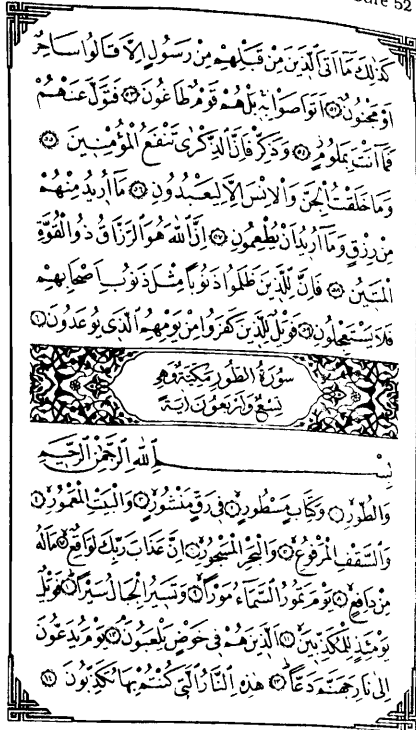 Sure 52
كَذٰلِكَ مَٓا اَتَى الَّذ۪ينَ مِنْ قَبْلِهِمْ مِنْ رَسُولٍ اِلَّا قَالُوا سَاحِرٌ
اَوْ مَجْنُونٌ ﴿٥٢﴾ اَتَوَاصَوْا بِه۪ بَلْ هُمْ قَوْمٌ طَاغُونَ ﴿٥٣﴾ فَتَوَلَّ عَنْهُمْ
فَمَٓا اَنْتَ بِمَلُومٍ ﴿٥٤﴾ وَذَكِّرْ فَاِنَّ الذِّكْرٰى تَنْفَعُ الْمُؤْمِن۪ينَ ﴿٥٥﴾
وَمَا خَلَقْتُ الْجِنَّ وَالْاِنْسَ اِلَّا لِيَعْبُدُونِ ﴿٥٦﴾ مَٓا اُر۪يدُ مِنْهُمْ
مِنْ رِزْقٍ وَمَٓا اُر۪يدُ اَنْ يُطْعِمُونِ ﴿٥٧﴾ اِنَّ اللّٰهَ هُوَ الرَّزَّاقُ ذُو الْقُوَّةِ
الْمَت۪ينُ ﴿٥٨﴾ فَاِنَّ لِلَّذ۪ينَ ظَلَمُوا ذَنُوبًا مِثْلَ ذَنُوبِ اَصْحَابِهِمْ
فَلَا يَسْتَعْجِلُونِ ﴿٥٩﴾ فَوَيْلٌ لِلَّذ۪ينَ كَفَرُوا مِنْ يَوْمِهِمُ الَّذ۪ي يُوعَدُونَ ﴿٦٠﴾
سُورَةُ الطُّورِ مَكِّيَّةٌ وَهِيَ
تِسْعٌ وَاَرْبَعُونَ اٰيَةً
بِسْمِ اللّٰهِ الرَّحْمٰنِ الرَّح۪يمِ
وَالطُّورِ ﴿١﴾ وَكِتَابٍ مَسْطُورٍ ﴿٢﴾ ف۪ي رَقٍّ مَنْشُورٍ ﴿٣﴾ وَالْبَيْتِ الْمَعْمُورِ ﴿٤﴾
وَالسَّقْفِ الْمَرْفُوعِ ﴿٥﴾ وَالْبَحْرِ الْمَسْجُورِ ﴿٦﴾ اِنَّ عَذَابَ رَبِّكَ لَوَاقِعٌ ﴿٧﴾ مَا لَهُ
مِنْ دَافِعٍ ﴿٨﴾ يَوْمَ تَمُورُ السَّمَٓاءُ مَوْرًا ﴿٩﴾ وَتَس۪يرُ الْجِبَالُ سَيْرًا ﴿١٠﴾ فَوَيْلٌ
يَوْمَئِذٍ لِلْمُكَذِّب۪ينَ ﴿١١﴾ اَلَّذ۪ينَ هُمْ ف۪ي خَوْضٍ يَلْعَبُونَ ﴿١٢﴾ يَوْمَ يُدَعُّونَ
اِلٰى نَارِ جَهَنَّمَ دَعًّا ﴿١٣﴾ هٰذِهِ النَّارُ الَّت۪ي كُنْتُمْ بِهَا تُكَذِّبُونَ ﴿١٤﴾